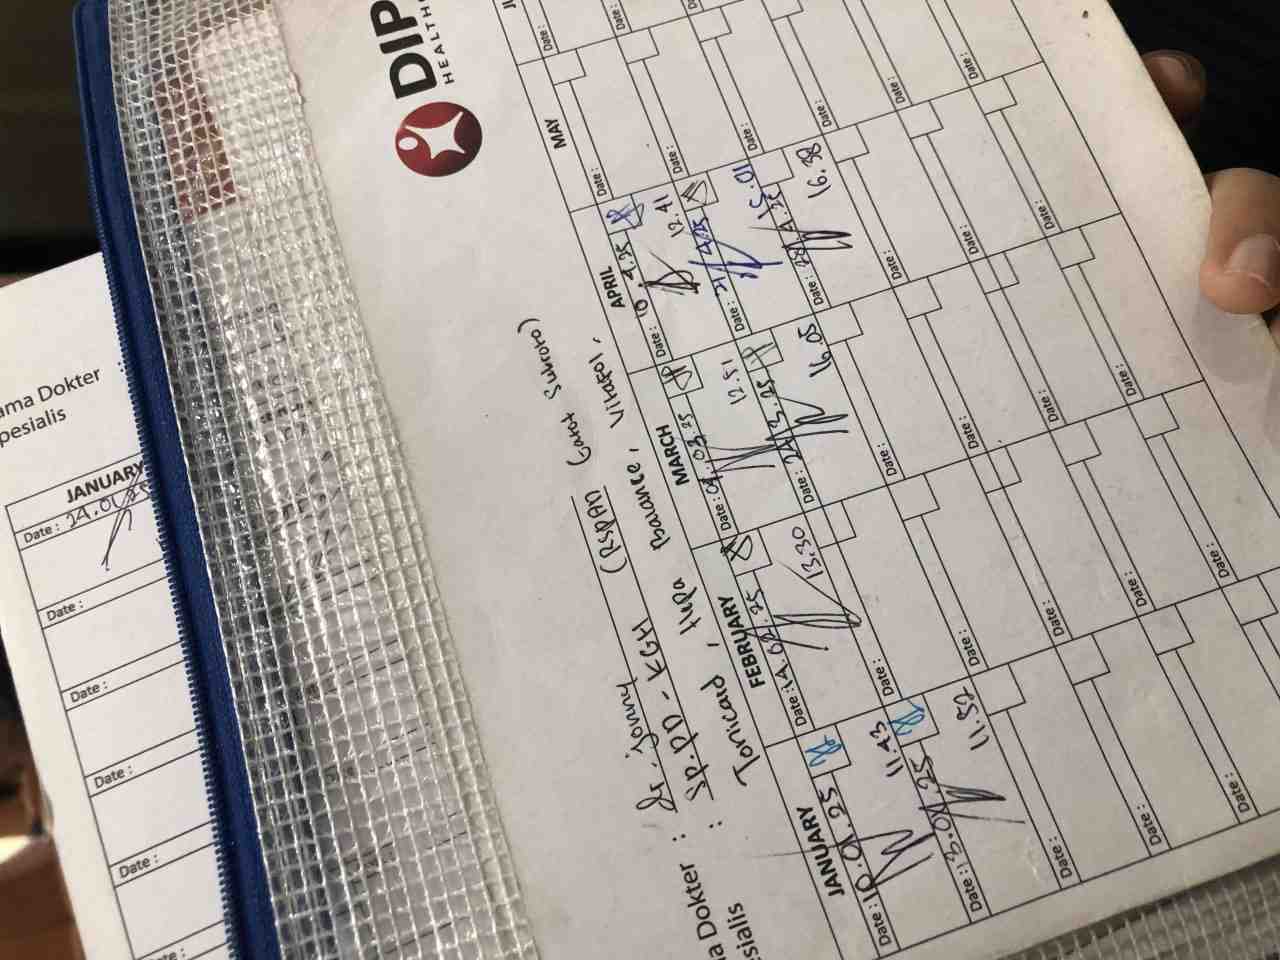 DIP
HEALTHC
ama Dokter :
pesialis
JANUARY
Date : 24.01.25
Date :
Date :
Date :
Date :
Date :
ma Dokter : dr. Jonny (RSPAD Gatot Subroto)
esialis : Sp.PD - KGH
Tonicard, Hupa Balance,
JANUARY FEBRUARY MARCH APRIL MAY
Date : 10.01.25 11.43
Date : 14.02.25 13.30
Date : 03.25 12.51
Date : 10.4.25 12.41
Date :
Date :
Date : .01.25 11.52
Date :
Date : 24.3.25 16.05
Date : 21/4/25 15.01
Date :
Date :
Date :
Date :
Date :
Date : 28.4.25 16.38
Date :
Date :
Date :
Date :
Date :
Date :
Date :
Date :
Date :
Date :
Date :
Date :
Date :